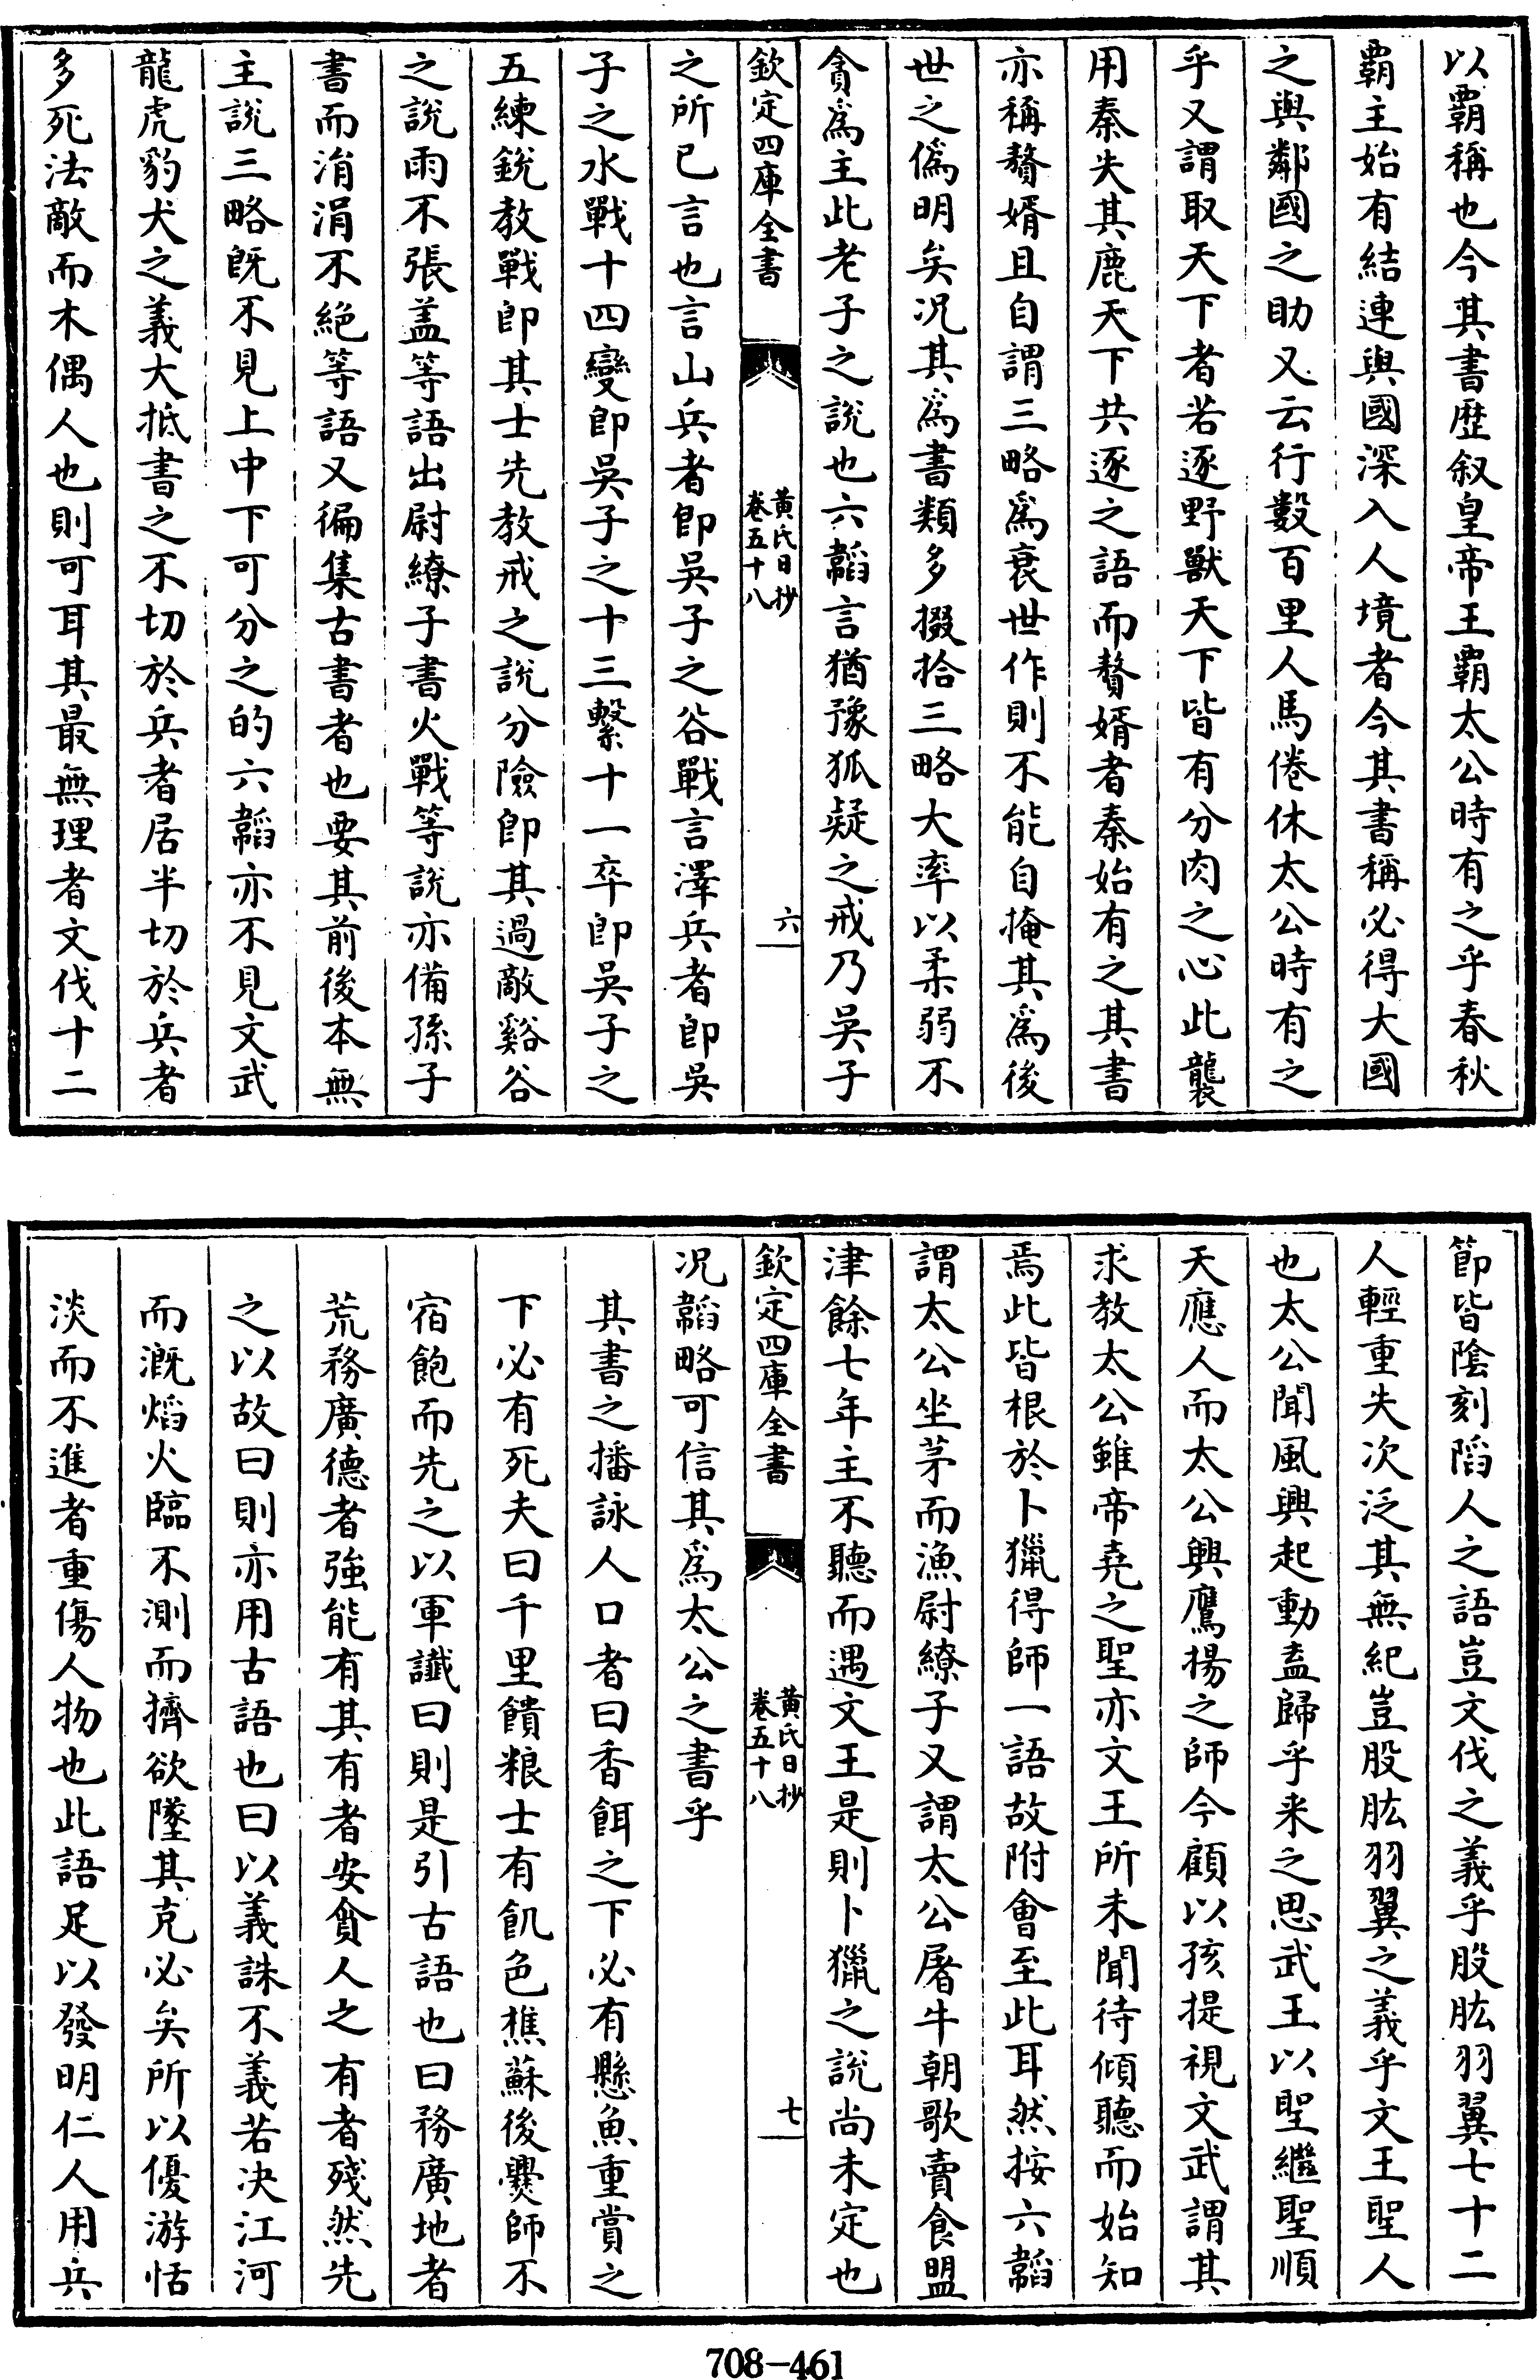 以覇稱也今其書歴叙皇帝王覇太公時有之乎春秋
覇主始有結連與國深入人境者今其書稱必得大國
之與鄰國之助又云行數百里人馬倦休太公時有之
乎又謂取天下者若逐野獸天下皆有分肉之心此襲
用秦失其鹿天下共逐之語而贅婿者秦始有之其書
亦稱贅婿且自謂三略爲衰世作則不能自掩其爲後
世之僞明矣况其爲書類多掇拾三略大率以柔弱不
貪爲主此老子之說也六韜言猶豫狐疑之戒乃吳子
欽定四庫全書
黄氏日抄
卷五十八
六
之所已言也言山兵者即吳子之谷戰言澤兵者即吳
子之水戰十四變即吳子之十三繫十一卒即吳子之
五練銳教戰即其士先教戒之說分險即其過敵谿谷
之說雨不張盖等語出尉繚子書火戰等說亦備孫子
書而涓涓不絶等語又徧集古書者也要其前後本無
主說三略既不見上中下可分之的六韜亦不見文武
龍虎豹犬之義大抵書之不切於兵者居半切於兵者
多死法敵而木偶人也則可耳其最無理者文伐十二
節皆陰刻䧟人之語豈文伐之義乎股肱羽翼七十二
人輕重失次泛其無紀豈股肱羽翼之義乎文王聖人
也太公聞風興起動盍歸乎来之思武王以聖繼聖順
天應人而太公興鷹揚之師今顧以孩提視文武謂其
求教太公雖帝堯之聖亦文王所未聞待傾聽而始知
焉此皆根於卜獵得師一語故附會至此耳然按六韜
謂太公坐茅而漁尉繚子又謂太公屠牛朝歌賣食盟
津餘七年主不聽而遇文王是則卜獵之說尚未定也
欽定四庫全書
黄氏日抄
卷五十八
七
况韜略可信其爲太公之書乎
其書之播詠人口者曰香餌之下必有懸魚重賞之
下必有死夫曰千里饋粮士有飢色樵蘇後爨師不
宿飽而先之以軍讖曰則是引古語也曰務廣地者
荒務廣德者強能有其有者安貪人之有者殘然先
之以故曰則亦用古語也曰以義誅不義若决江河
而溉爝火臨不測而擠欲墜其克必矣所以優游恬
淡而不進者重傷人物也此語足以發明仁人用兵
708-461